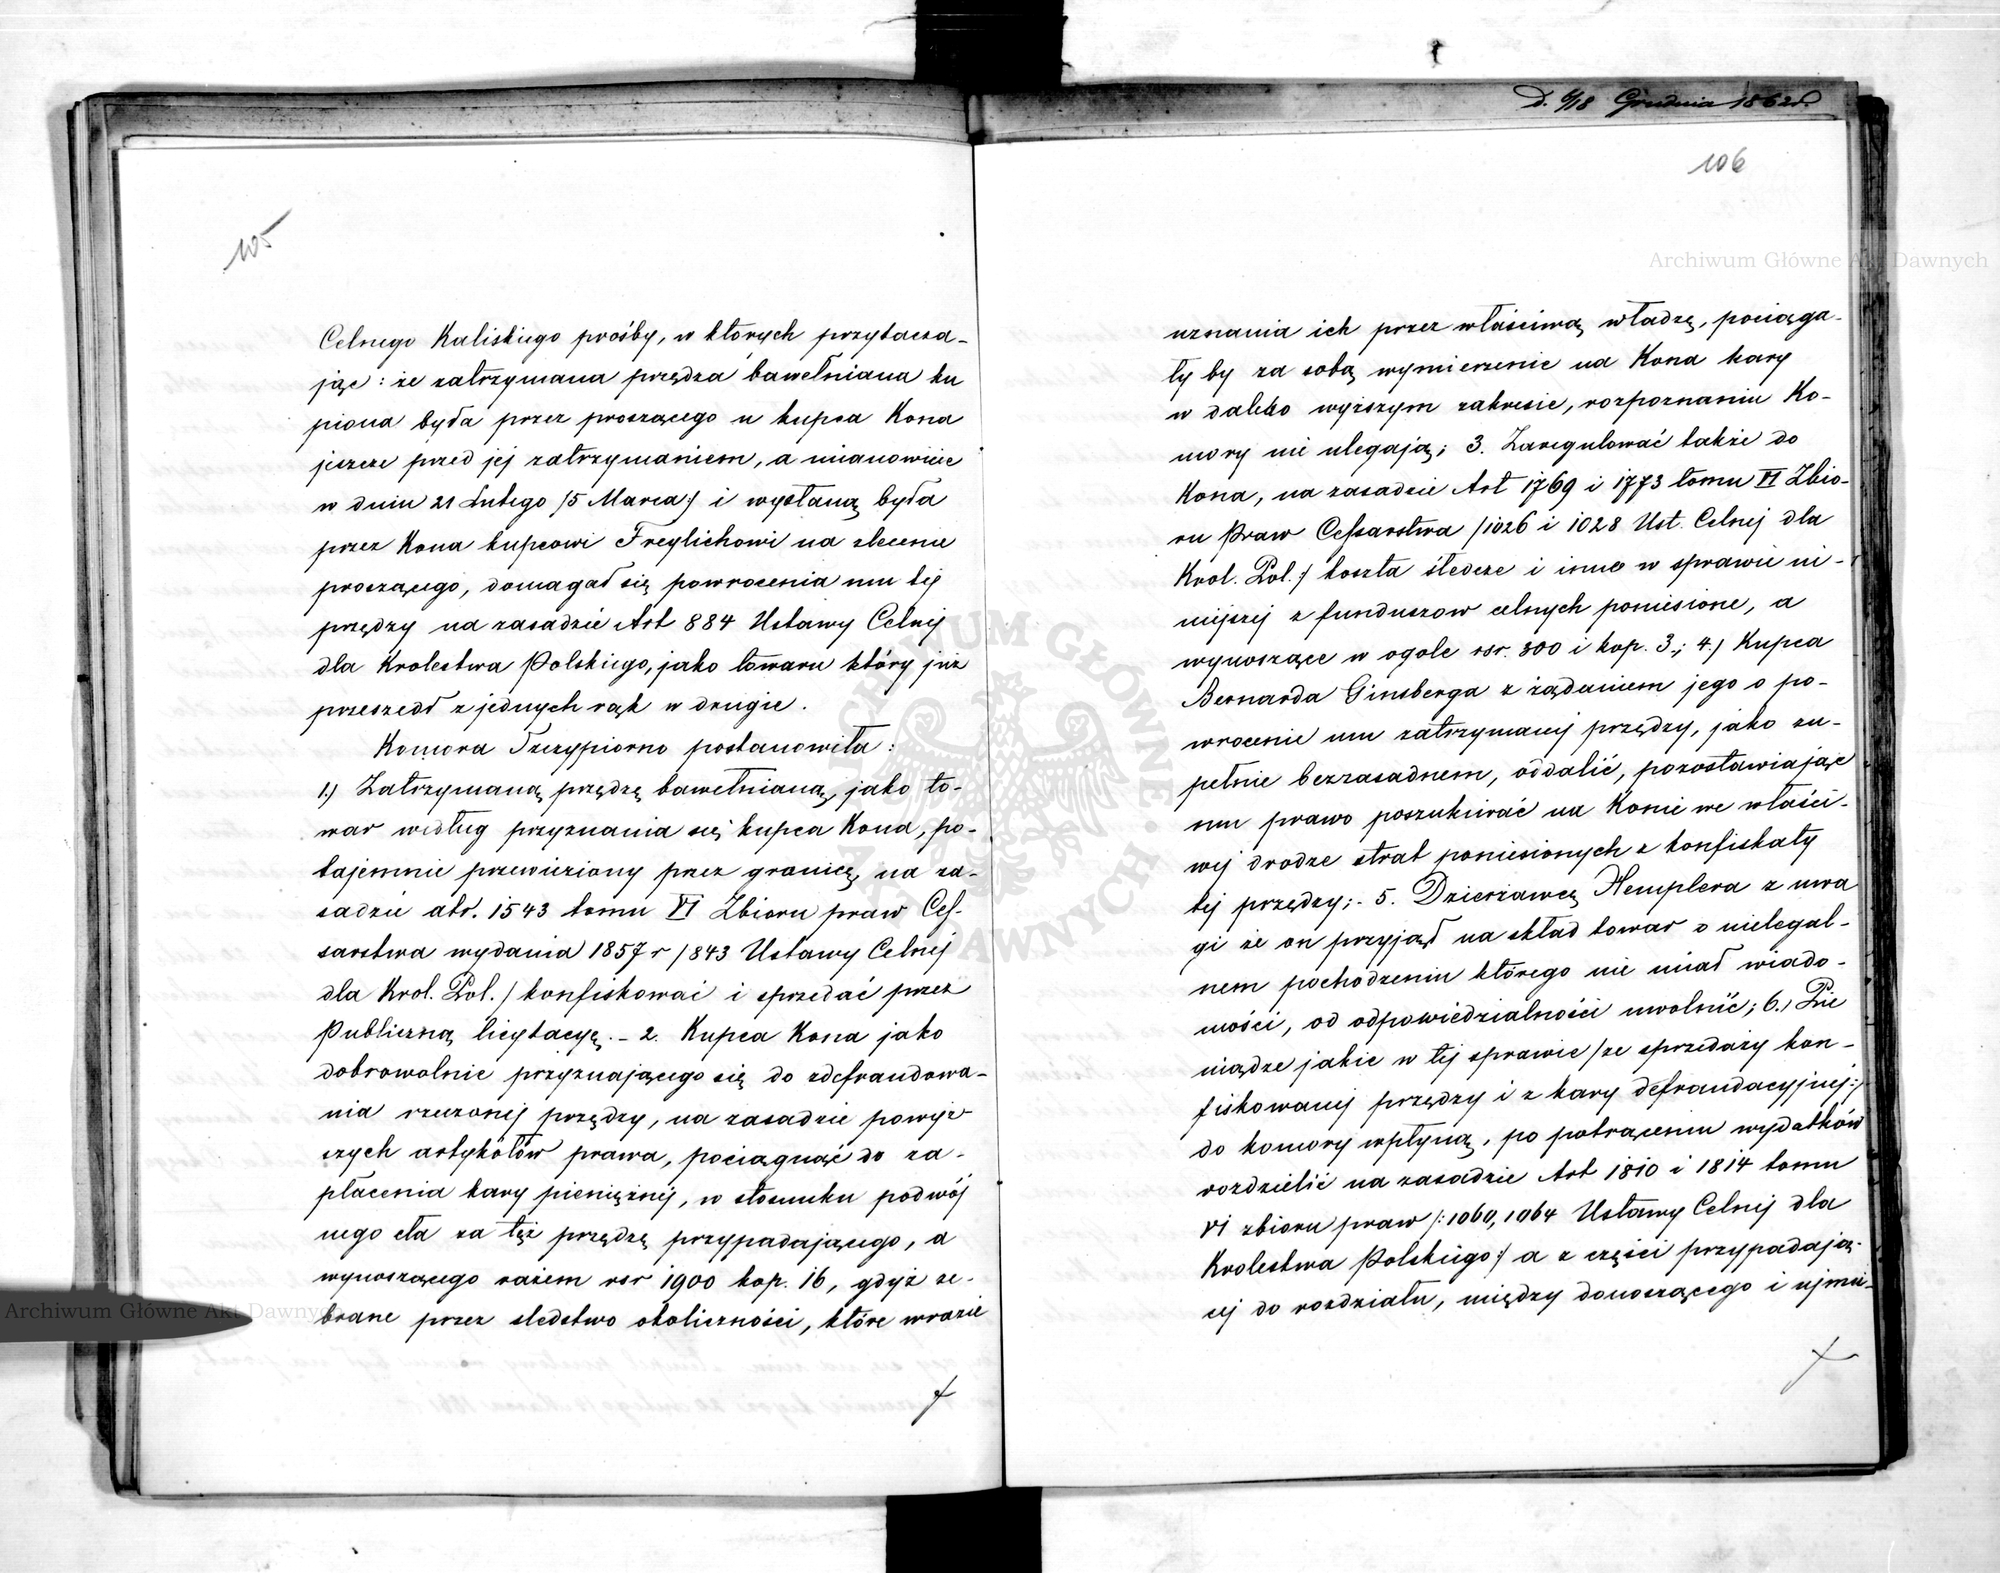 105
Celnego Kaliskiego prośby, w których przytacza-
jąc: że zatrzymana przędza bawełniana ku
piona była przez proszącego u kupca Kona
jeszcze przed jej zatrzymaniem, a mianowicie
w dniu 21 Lutego /5 Marca:/ i wysłaną była
przez Kona kupcowi Freylichowi na zlecenie
proszącego, domagał się powrócenia mu tej
przędzy na zasadzie Art 884 Ustawy Celnej
dla Krolestwa Polskiego, jako towaru który już
przeszedł z jednych rąk w drugie.
Komora Szczypiorno postanowiła:
1.) Zatrzymaną przędzę bawełnianą, jako to-
war według przyznania się kupca Kona, po-
tajemnie przewieziony przez granicę, na za-
sadzie atr. 1543 tomu VI Zbioru praw Ces-
sarstwa wydania 1857 r /843 Ustawy Celnej
dla Krol. Pol./ konfiskować i sprzedać przez
Publiczną licytacyę.- 2. Kupca Kona jako
dobrowolnie przyznającego się do zdefraudowa-
nia rzeczonej przędzy, na zasadzie powyż
szych artykółów prawa, pociągnąć do za-
płacenia kary pieniężnej, w stosunku podwój
nego cła za tęż przędzę przypadającego, a
wynoszącego razem rsr 1900 kop. 16, gdyż ze-
brane przez sledztwo okoliczności, które wrazie
D. 6/18 Grudnia 1862r.
106
uznania ich przez właściwą władzę, pociąga-
ły by za sobą wymierzenie na Kona kary
w daleko wyższym zakresie, rozpoznaniu Ko-
mory nie ulegają; 3. Zaregulować także do
Kona, na zasadzie Art 1769 i 1773 tomu VI Zbio-
ru Praw Cessarstwa /1026 i 1028 Ust. Celnej dla
Krol. Pol.:/ koszta śledcze i inne w sprawie ni-
niejszej z funduszow celnych poniesione, a
wynoszące w ogole rsr. 300 i kop. 3.; 4.) Kupca
Bernarda Ginsberga z żądaniem jego o po-
wrocenie mu zatrzymanej przędzy, jako zu-
pełnie bezzasadnem, oddalić, pozostawiając
mu prawo poszukiwać na Konie we właści-
wej drodze strat poniesionych z konfiskaty
tej przędzy;- 5. Dzierżawcę Hemplera z uwa
gi że on przyjął na skład towar o nielegal-
nem pochodzeniu którego nie miał wiado-
mości, od odpowiedzialności uwolnić; 6.) Pie
niądze jakie w tej sprawie /ze sprzedaży kon-
fiskowanej przędzy i z kary defraudacyjnej:/
do komory wpłyną, po potrąceniu wydatków
rozdzielić na zasadzie Art 1810 i 1814 tomu
VI zbioru praw /:1060, 1064 Ustawy Celnej dla
Krolestwa Polskiego:/ a z części przypadają-
cej do rozdziału, między donoszącego i ujmu-
Archiwum Główne Akt Dawnych
Archiwum Główne Akt Dawnych